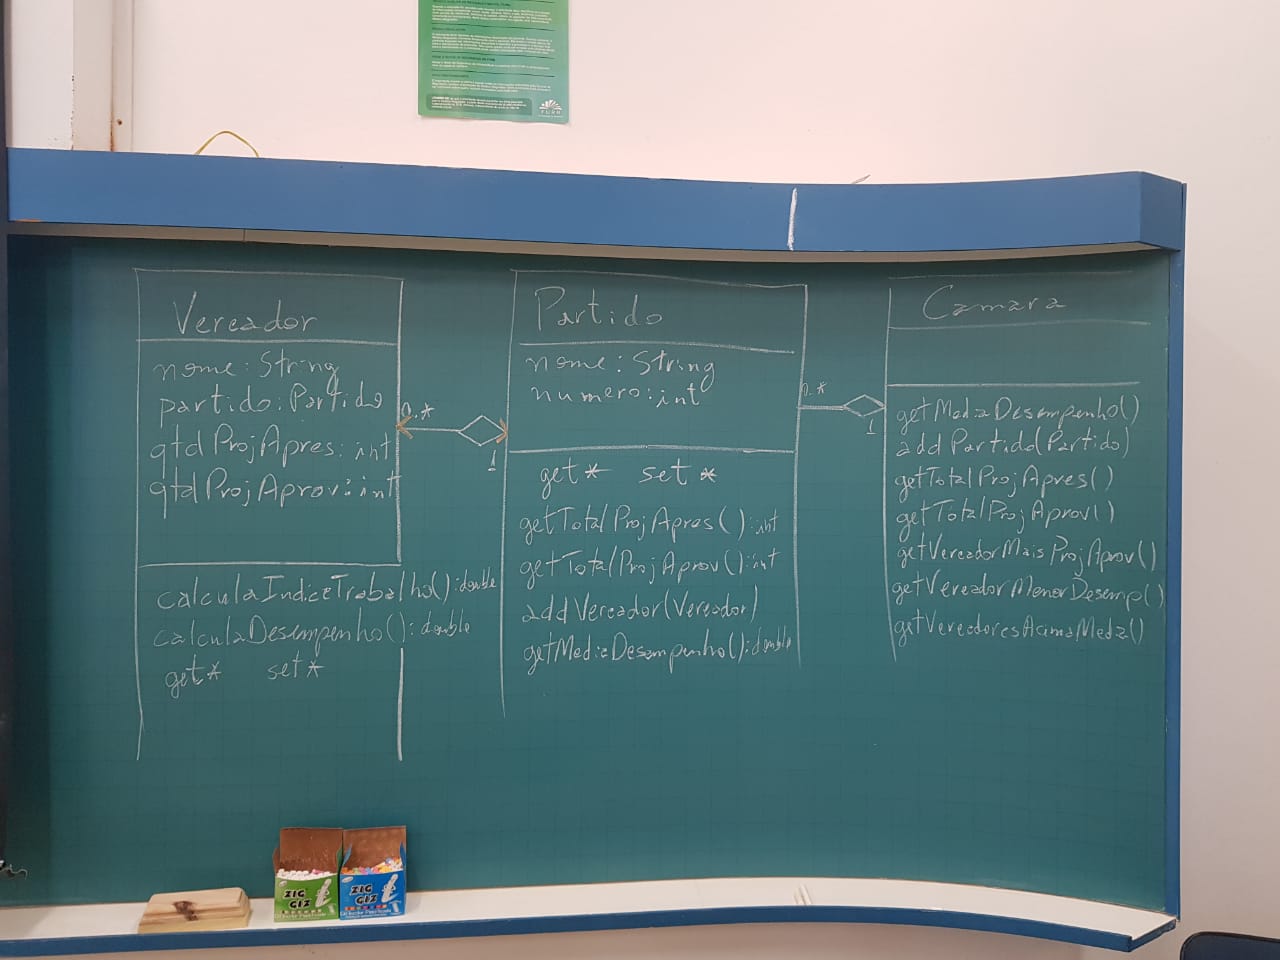 FURB
Vereador
nome: String
partido: Partido
qtdProjApres: int
qtdProjAprov: int
calculaIndiceTrabalho(): double
calculaDesempenho(): double
get* set*
0..*
1
Partido
nome: String
numero: int
get* set*
getTotalProjApres(): int
getTotalProjAprov(): int
addVereador(Vereador)
getMediaDesempenho(): double
0..*
1
Camara
getMediaDesempenho()
addPartido(Partido)
getTotalProjApres()
getTotalProjAprov()
getVereadorMaisProjAprov()
getVereadorMenorDesemp()
getVereadoresAcimaMedia()
ZIG
GIZ
ZIG
GIZ